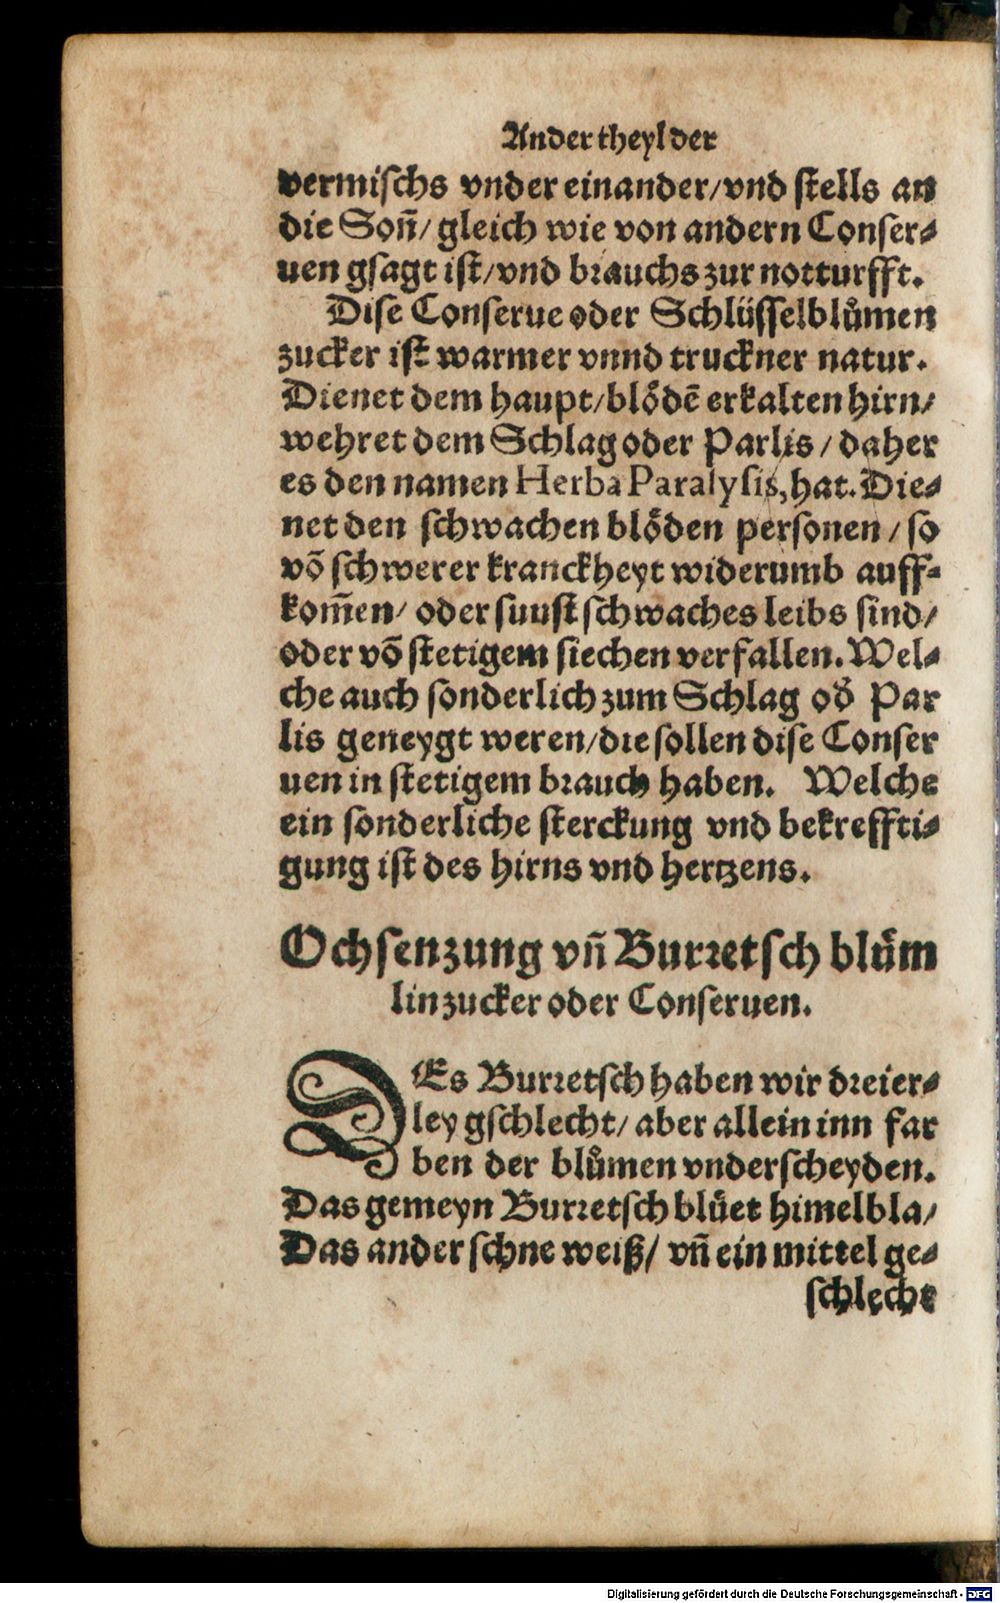 Ander theyl der
vermischs vnder einander/vnd stells an
die Son̄/ gleich wie von andern Conser⸗
uen gsagt ist/vnd brauchs zur notturfft.
Dise Conserue oder Schlüsselblůmen
zucker ist warmer vnnd truckner natur.
Dienet dem haupt/blödē erkalten hirn/
wehret dem Schlag oder Parlis / daher
es den namen Herba Paralysis, hat. Die⸗
net den schwachen blöden personen / so
võ schwerer kranckheyt widerumb auff⸗
kom̄en/ oder sunst schwaches leibs sind/
oder võ stetigem siechen verfallen. Wel⸗
che auch sonderlich zum Schlag od̄ Par
lis geneygt weren/die sollen dise Conser
uen in stetigem brauch haben. Welche
ein sonderliche sterckung vnd bekreffti⸗
gung ist des hirns vnd hertzens.
Ochsenzung vn̄ Burretsch blüm
linzucker oder Conseruen.
DEs Burretsch haben wir dreier⸗
ley gschlecht/ aber allein inn far
ben der blůmen vnderscheyden.
Das gemeyn Burretsch blüet himelbla/
Das ander schne weiß/ vn̄ ein mittel ge⸗
schlecht
Digitalisierung gefördert durch die Deutsche Forschungsgemeinschaft - DFG